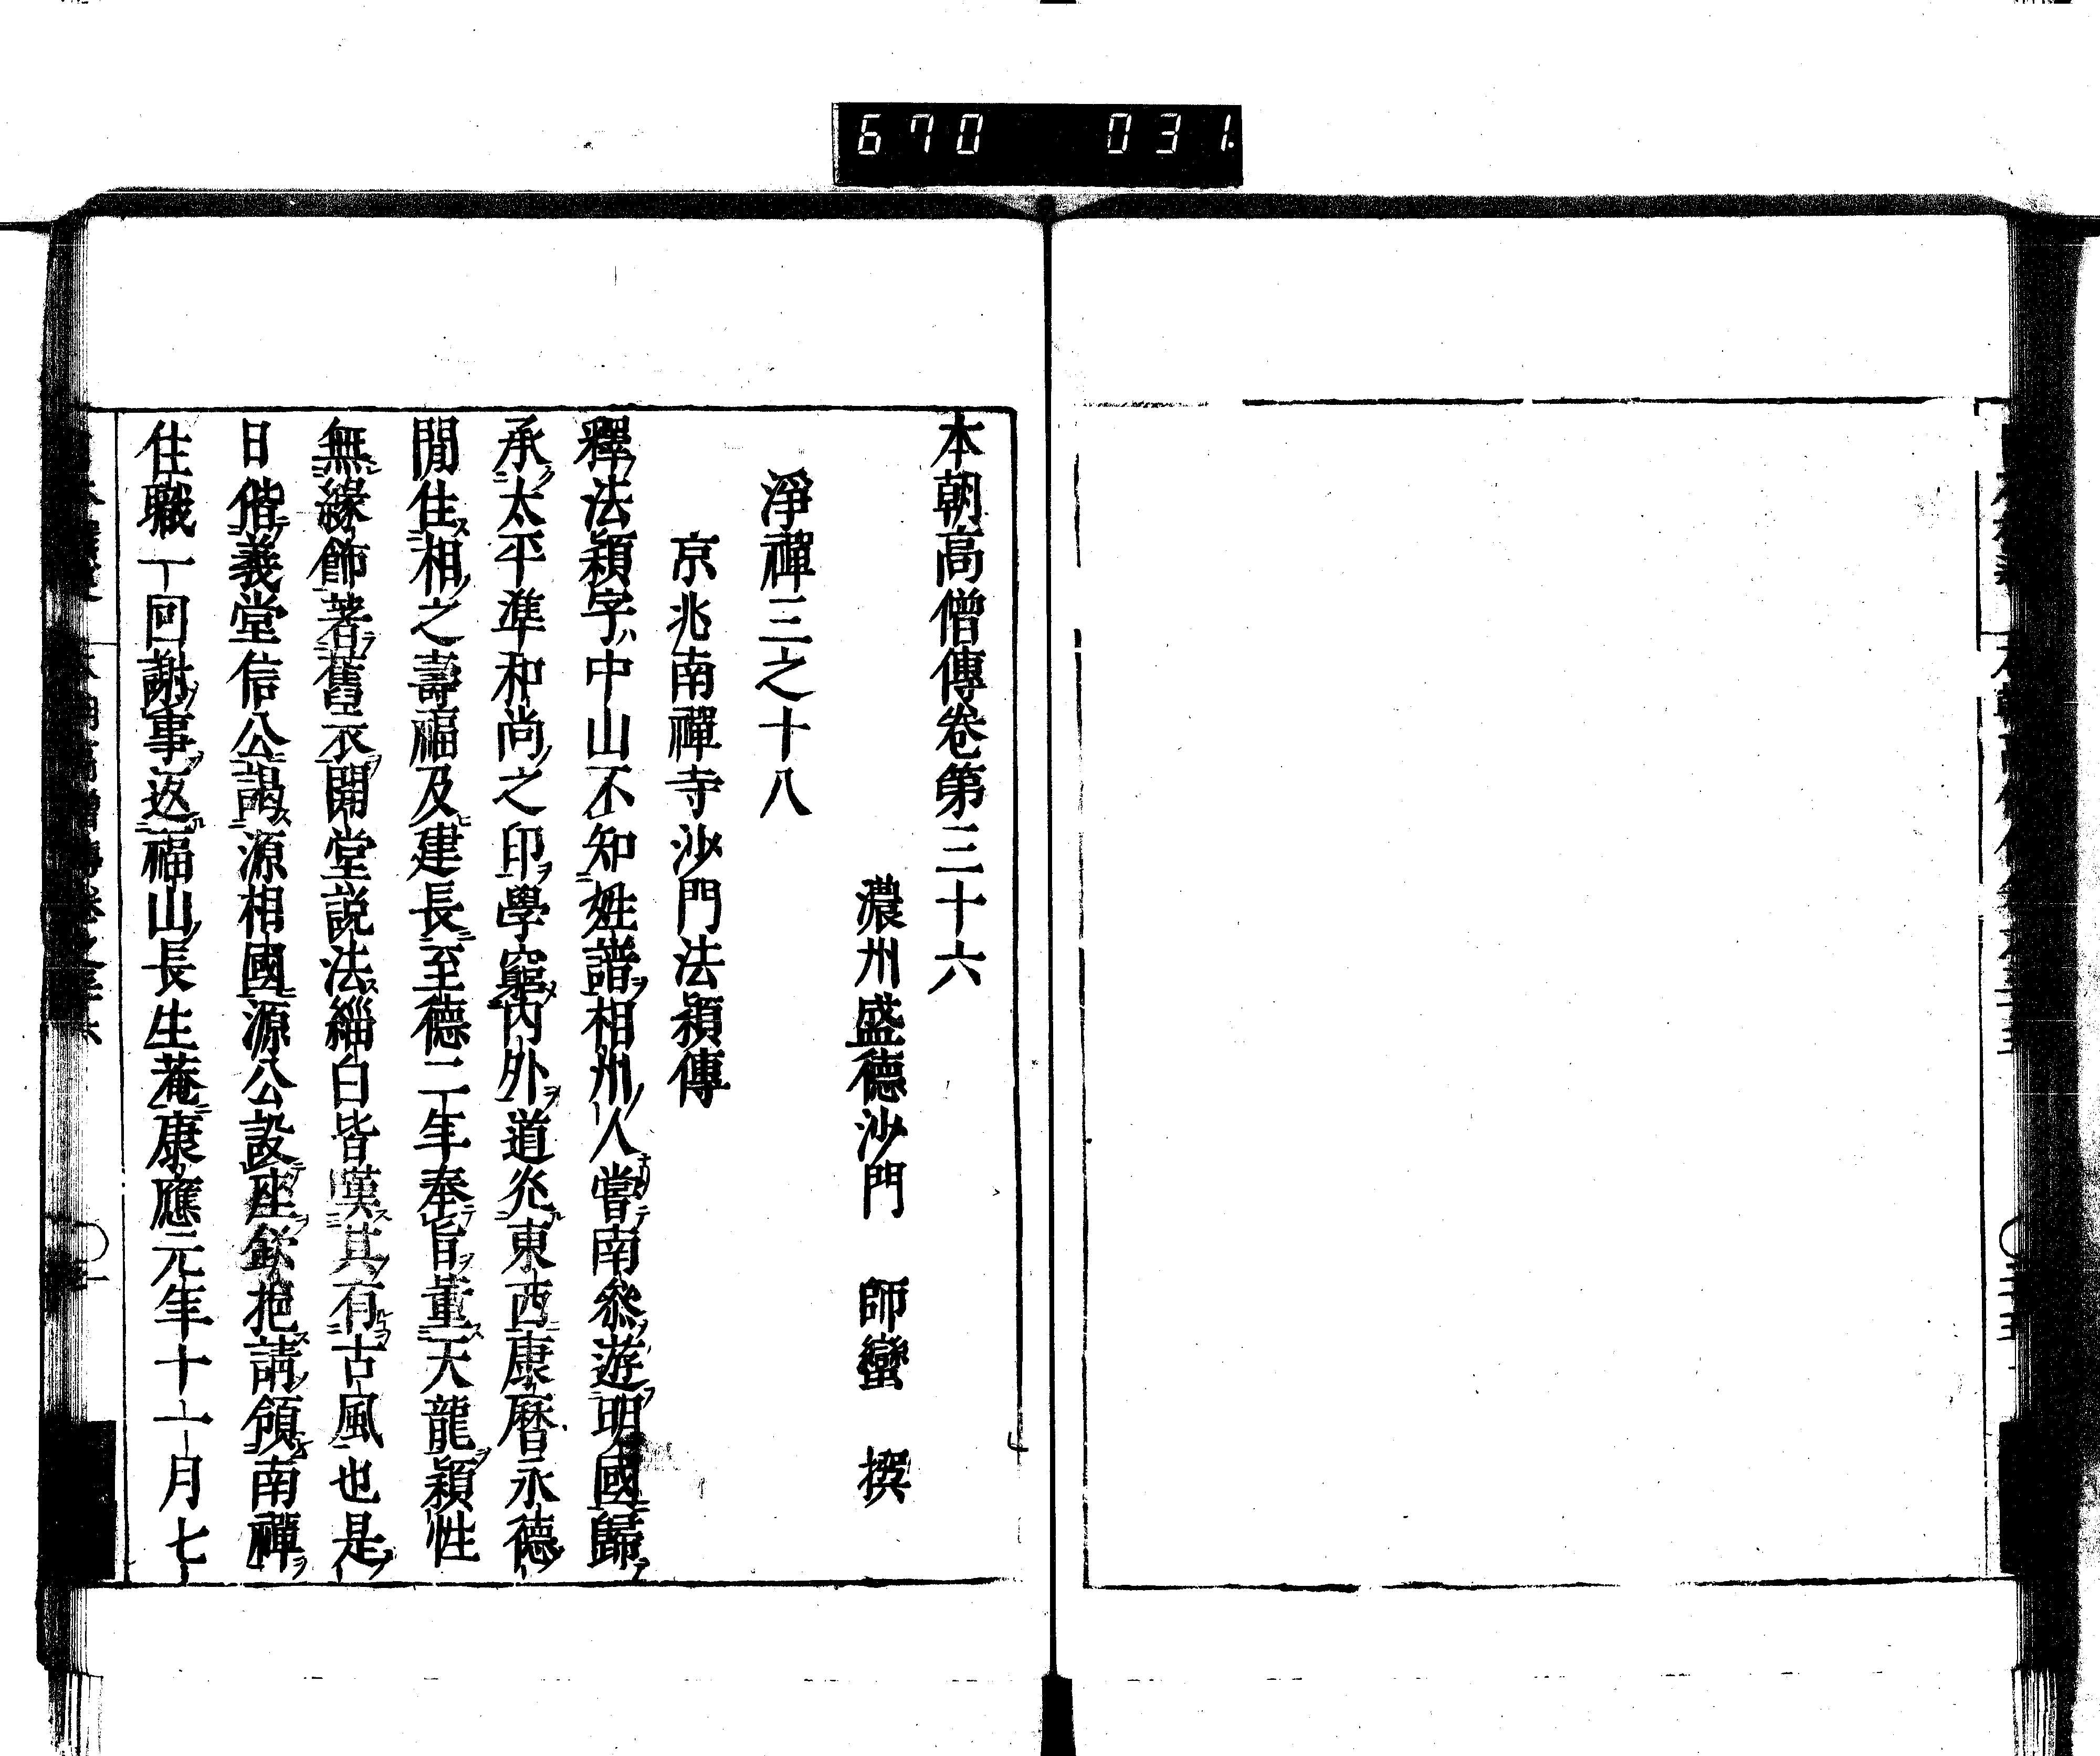 670 031.
本朝高僧傳卷第三十六
濃州盛德沙門 師蠻 撰
淨禪三之十八
京兆南禪寺沙門法穎傳
釋法穎字中山不知姓譜相州人嘗南參遊明國歸
承太平準和尚之印學窮內外道光東西康曆永德
閒住相之壽福及建長至德二年奉旨董天龍穎性
無緣飾著舊衣開堂説法緇白皆嘆其有古風也是
日偕義堂信公謁源相國源公設座欽挹請領南禪
住職一回謝事返福山長生菴康應元年十一月七